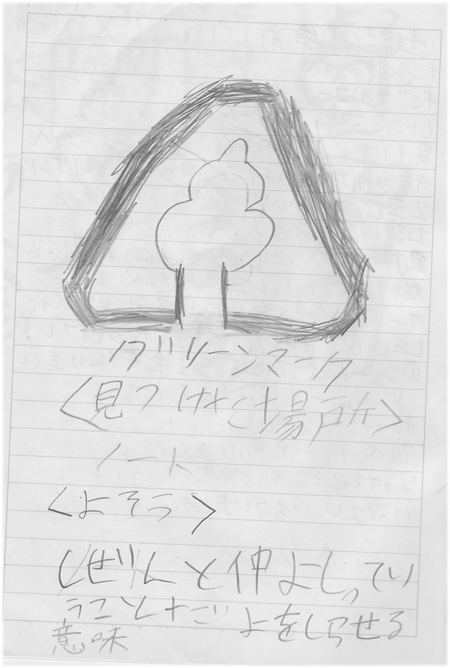 グリーンマーク
<見つけた場所>
ノート
<よそう>
しぜんと仲よしってい
うことだよをしらせる
意味